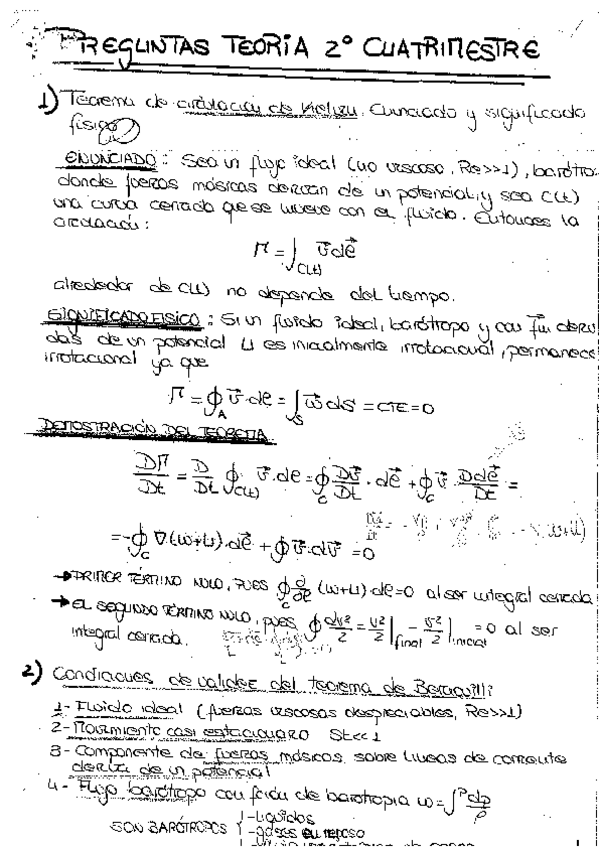 PREGUNTAS TEORIA 2º CUATRIMESTRE
1) Teorema de circulación de Kelvin. Enunciado y significado
físico
ENUNCIADO: Sea un flujo ideal (no viscoso, Re>>1), barótro-
donde fuerzas másicas derivan de un potencial, y sea C(t)
una curva cerrada que se mueve con el fluido. Entonces la
circulación:
Γ = ∫C(t) v⃗ dl⃗
alrededor de C(t) no depende del tiempo.
SIGNIFICADO FISICO: Si un fluido ideal, barótropo y con f⃗m deriva-
das de un potencial U es inicialmente irrotacional, permanece
irrotacional ya que
Γ = ∮A v⃗ · dl⃗ = ∫S w⃗ ds⃗ = CTE = 0
DEMOSTRACIÓN DEL TEOREMA
DΓ/Dt = D/Dt ∮C(t) v⃗ · dl⃗ = ∮C Dv⃗/Dt · dl⃗ + ∮C v⃗ · Ddl⃗/Dt =
= -∮C ∇(w+U) · dl⃗ + ∮ v⃗ · dv⃗ = 0
→ PRIMER TÉRMINO NULO, PUES ∮C ∂/∂l (w+U) · dl = 0 al ser integral cerrada
→ EL SEGUNDO TÉRMINO NULO, pues ∮ dv²/2 = v²/2|final - v²/2|inicial = 0 al ser
integral cerrada.
2) Condiciones de validez del teorema de Bernoulli:
1- Fluido ideal (fuerzas viscosas despreciables, Re>>1)
2- Movimiento casi estacionario St<<1
3- Componente de fuerzas másicas sobre lineas de corriente
deriva de un potencial
4- Flujo barótropo con fción de barotropía w = ∫P dp/ρ
SON BARÓTROPOS { 1-Líquidos
-gases en reposo